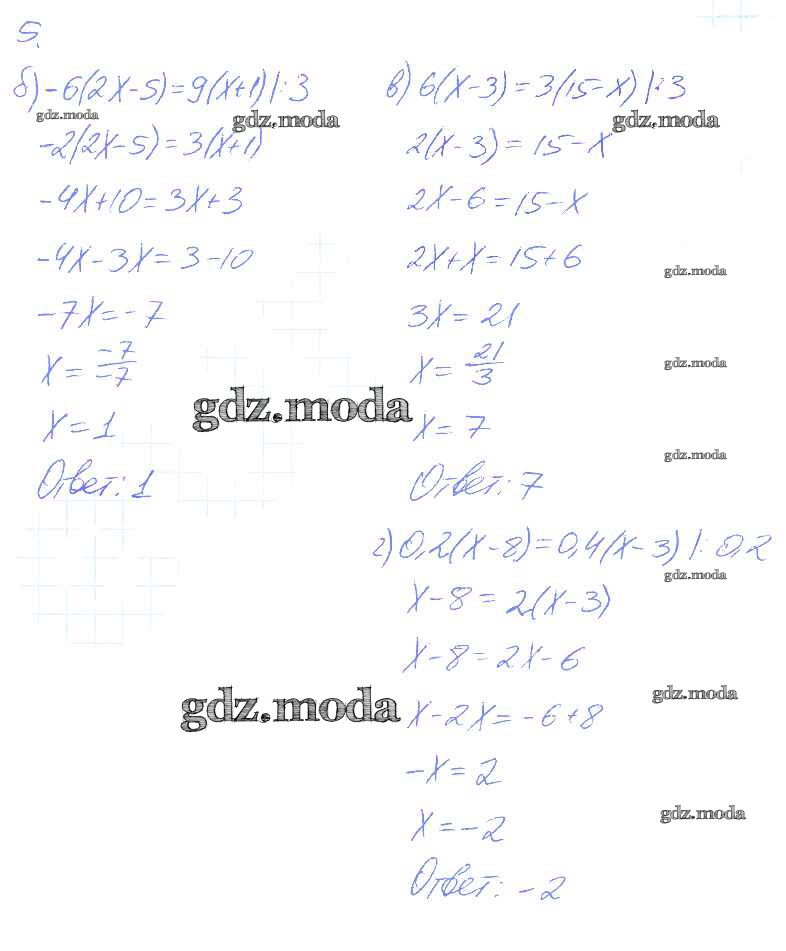 5.
б) -6(2x-5)=9(x+1) |:3
-2(2x-5)=3(x+1)
-4x+10=3x+3
-4x-3x=3-10
-7x=-7
x=-7/-7
x=1
Ответ: 1
в) 6(x-3)=3(15-x) |:3
2(x-3)=15-x
2x-6=15-x
2x+x=15+6
3x=21
x=21/3
x=7
Ответ: 7
г) 0,2(x-8)=0,4(x-3) |:0,2
x-8=2(x-3)
x-8=2x-6
x-2x=-6+8
-x=2
x=-2
Ответ: -2
gdz.moda
gdz.moda
gdz.moda
gdz.moda
gdz.moda
gdz.moda
gdz.moda
gdz.moda
gdz.moda
gdz.moda
gdz.moda